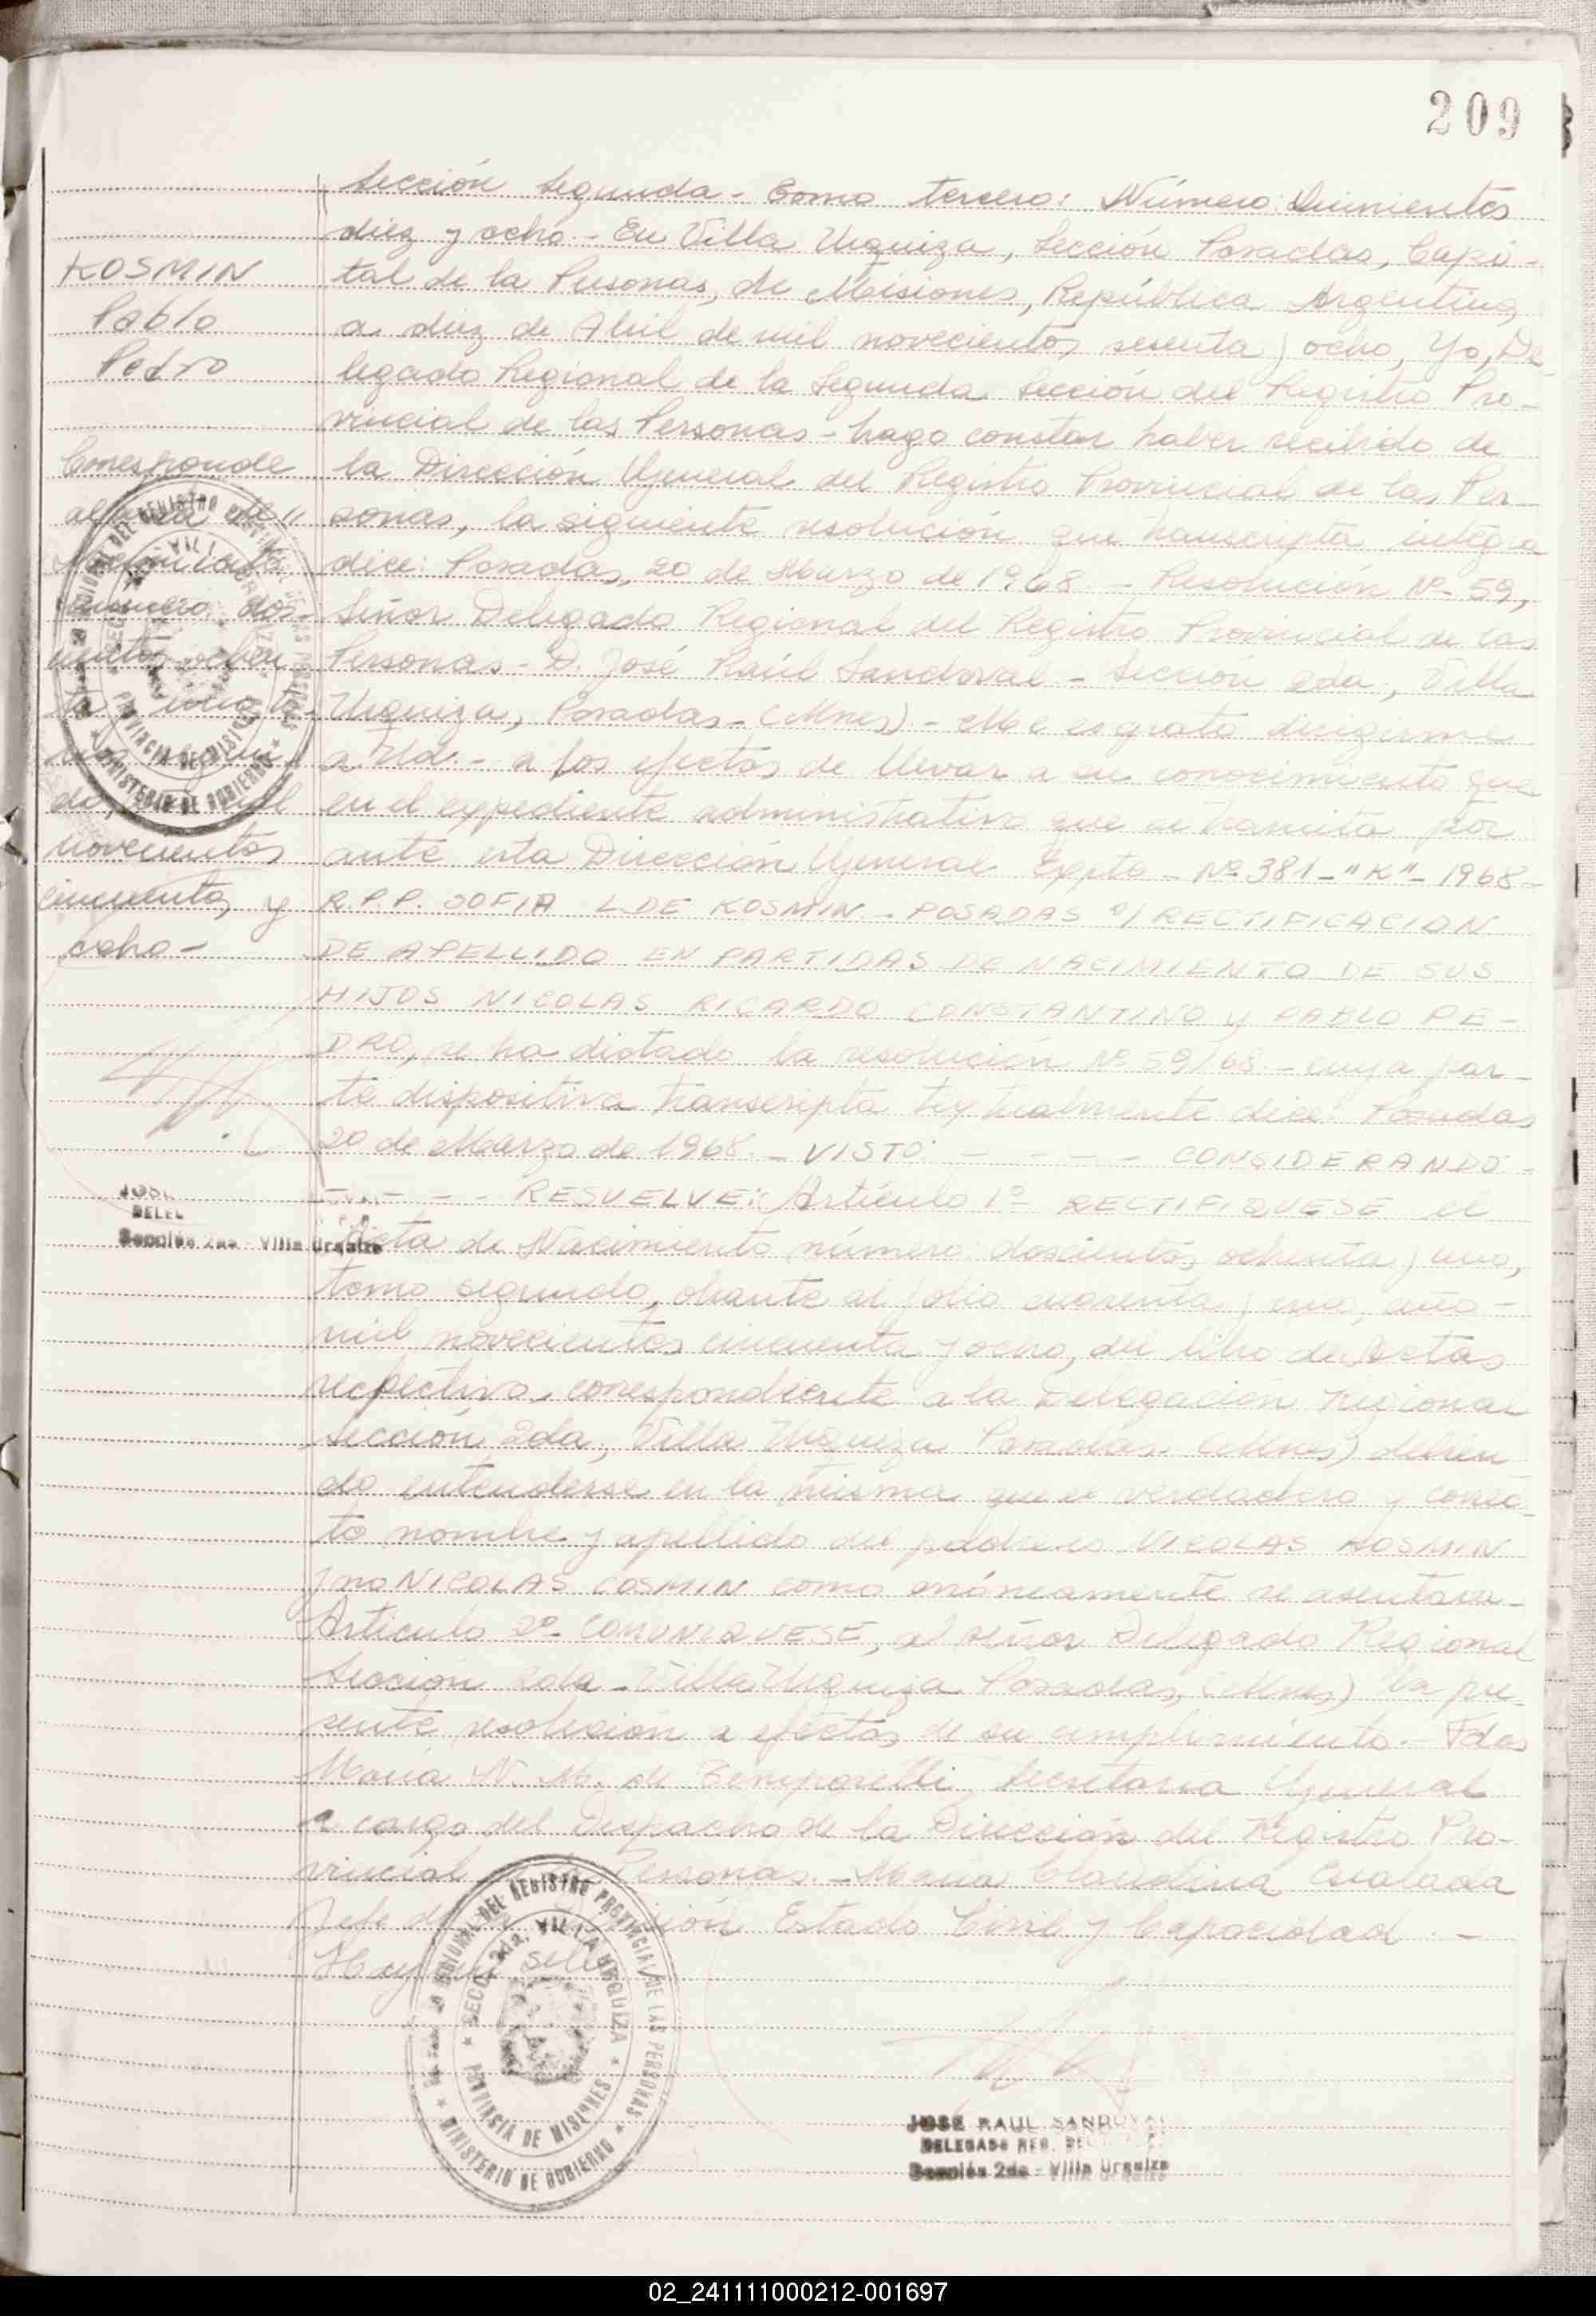 209
Sección Segunda - Tomo tercero: Número: Quinientos
diez y ocho - En Villa Urquiza, Sección Posadas, Capi-
KOSMIN
tal de la Personas, de Misiones, República Argentina,
Pablo
a diez de Abril de mil novecientos sesenta y ocho, Yo, De
Pedro
legado Regional de la Segunda Sección del Registro Pro-
vincial de las Personas - hago constar haber recibido de
Corresponde
la Dirección General del Registro Provincial de las Per-
al
sonas, la siguiente resolución que transcripta integra
dice: Posadas, 20 de Marzo de 1968 - Resolución Nº 59,
número dos-
Señor Delegado Regional del Registro Provincial de las
Personas - D. José Raúl Sandoval - Sección 2da, Villa
Urquiza, Posadas - (Mnes) - Me es grato dirigirme
a Ud. - a los efectos de llevar a su conocimiento que
do,
en el expediente administrativo que se tramita por
novecientos
ante esta Dirección General Expte - Nº 381 - "K" - 1968 -
cincuenta y
R.P.P. SOFIA L. DE KOSMIN - POSADAS s/ RECTIFICACION
ocho -
DE APELLIDO EN PARTIDAS DE NACIMIENTO DE SUS
HIJOS NICOLAS RICARDO CONSTANTINO y PABLO PE-
DRO, se ha dictado la resolución Nº 59/68 - cuya par-
te dispositiva transcripta textualmente dice: Posadas
20 de Marzo de 1968. - VISTO: - - - - CONSIDERANDO -
- - - - RESUELVE: Artículo 1º RECTIFIQUESE el
Sección 2da - Villa Urquiza
Acta de Nacimiento número doscientos ochenta y uno,
tomo segundo, obrante al folio cuarenta y uno, año -
mil novecientos cincuenta y ocho, del libro de Actas
respectivo, correspondiente a la Delegación Regional
Sección 2da, Villa Urquiza Posadas - (Mnes) debien
do entenderse en la misma que el verdadero y correc-
to nombre y apellido del padre es NICOLAS KOSMIN
y no NICOLAS COSMIN como erróneamente se asentara -
Artículo 2º - COMUNIQUESE, al señor Delegado Regional
Sección 2da - Villa Urquiza Posadas, (Mnes) la pre-
sente resolución a efectos de su cumplimiento. - Fdos
María N. M. de Temporelli, Secretaria General
a cargo del Despacho de la Dirección del Registro Pro-
vincial Personas. - María Claudina Escalada
Jefe Estado Civil y Capacidad -
Hay un sello
REGISTRO PROVINCIAL DE LAS PERSONAS
SECC. 2da. VILLA URQUIZA
PROVINCIA DE MISIONES
MINISTERIO DE GOBIERNO
JOSE RAUL SANDOVAL
DELEGADO REG.
Sección 2da - Villa Urquiza
02_241111000212-001697